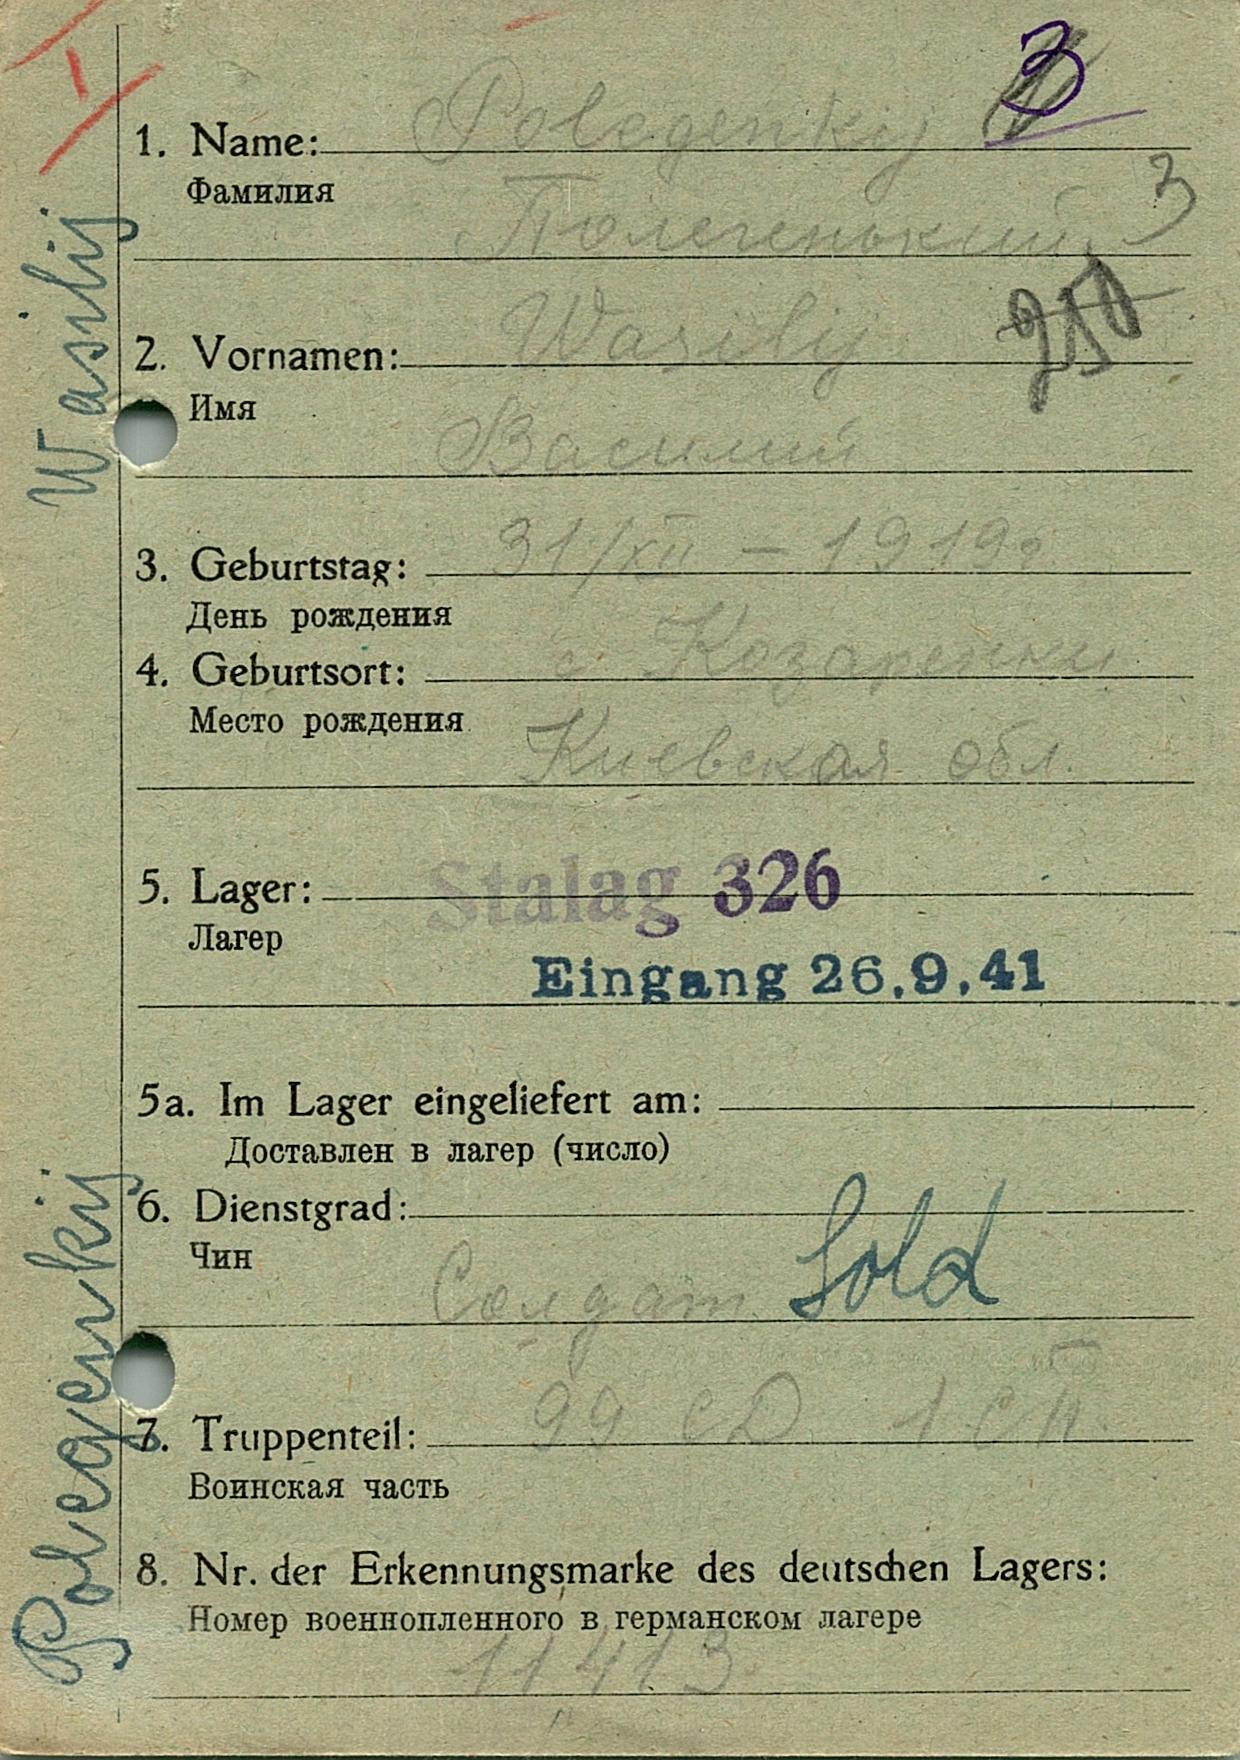 3
1. Name: Polegenkij
Фамилия
Полегенький 3
2. Vornamen: Wasilij
250
Имя
Василий
3. Geburtstag: 31/XII – 1919г
День рождения
4. Geburtsort: с.
Место рождения
Киевская обл.
5. Lager: Stalag 326
Лагер
Eingang 26.9.41
5a. Im Lager eingeliefert am:
Доставлен в лагер (число)
6. Dienstgrad:
Чин
Солдат Sold
7. Truppenteil: 99 СД 1 СП
Воинская часть
8. Nr. der Erkennungsmarke des deutschen Lagers:
Номер военнопленного в германском лагере
11413
Polegenkij Wasilij